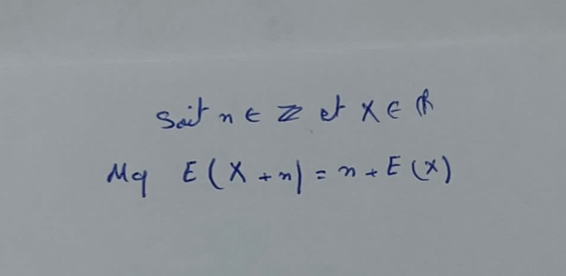 Soit n ∈ ℤ et X ∈ ℝ
Mq E(X+n) = n + E(x)